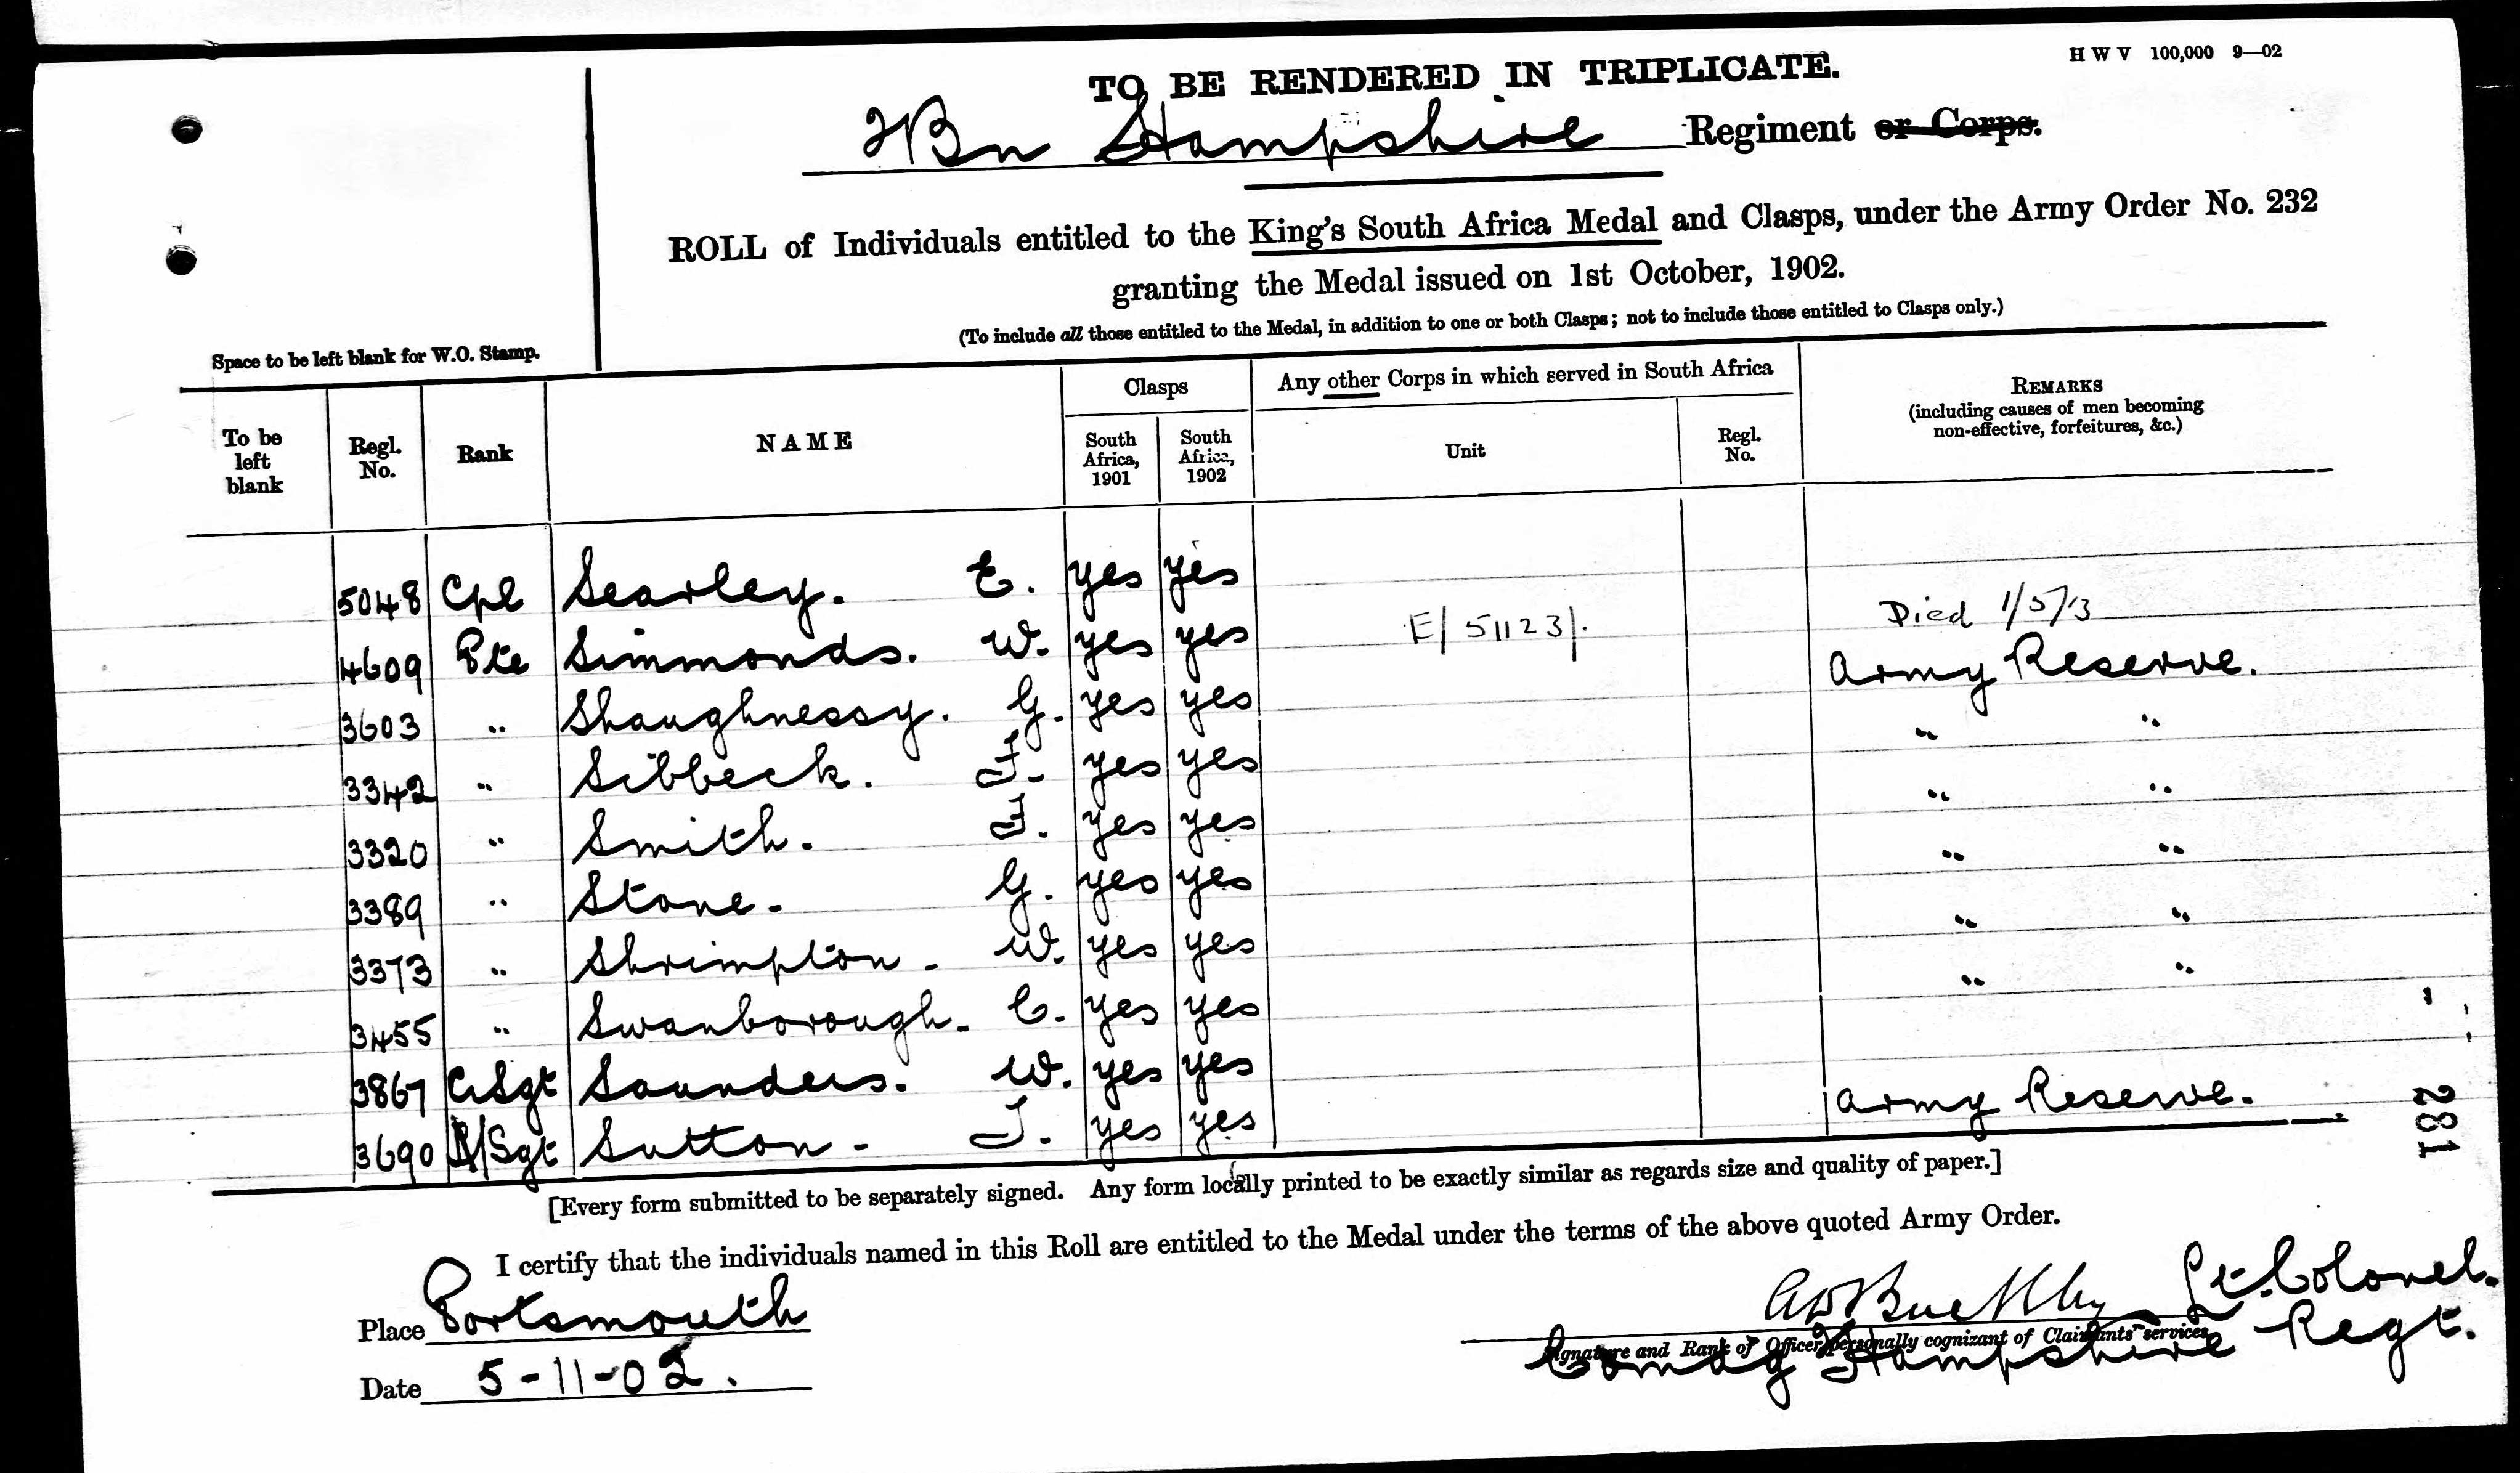 H W V 100,000 9—02
TO BE RENDERED IN TRIPLICATE.
2 Bn Hampshire Regiment or Corps.
ROLL of Individuals entitled to the King's South Africa Medal and Clasps, under the Army Order No. 232
granting the Medal issued on 1st October, 1902.
(To include all those entitled to the Medal, in addition to one or both Clasps; not to include those entitled to Clasps only.)
Space to be left blank for W.O. Stamp.
To be left blank Regl. No. Rank NAME Clasps South Africa, 1901 South Africa, 1902 Any other Corps in which served in South Africa Unit Regl. No. REMARKS (including causes of men becoming non-effective, forfeitures, &c.)
5048 Cpl Searley. E. yes yes
4609 Pte Simmonds. W. yes yes E/51123/. Died 1/5/13 Army Reserve.
3603 " Shaughnessy. G. yes yes " "
3342 " Sibbeck. J. yes yes " "
3320 " Smith. J. yes yes " "
3389 " Stone. G. yes yes " "
3373 " Shrimpton. W. yes yes " "
3455 " Swanborough. C. yes yes
3867 CrSgt Saunders. W. yes yes
3690 /Sgt Sutton. J. yes yes Army Reserve.
281
[Every form submitted to be separately signed. Any form locally printed to be exactly similar as regards size and quality of paper.]
I certify that the individuals named in this Roll are entitled to the Medal under the terms of the above quoted Army Order.
Place Portsmouth
Lt. Colonel.
Signature and Rank of Officer personally cognizant of Claimants' services
Comdg Hampshire Regt.
Date 5-11-02.